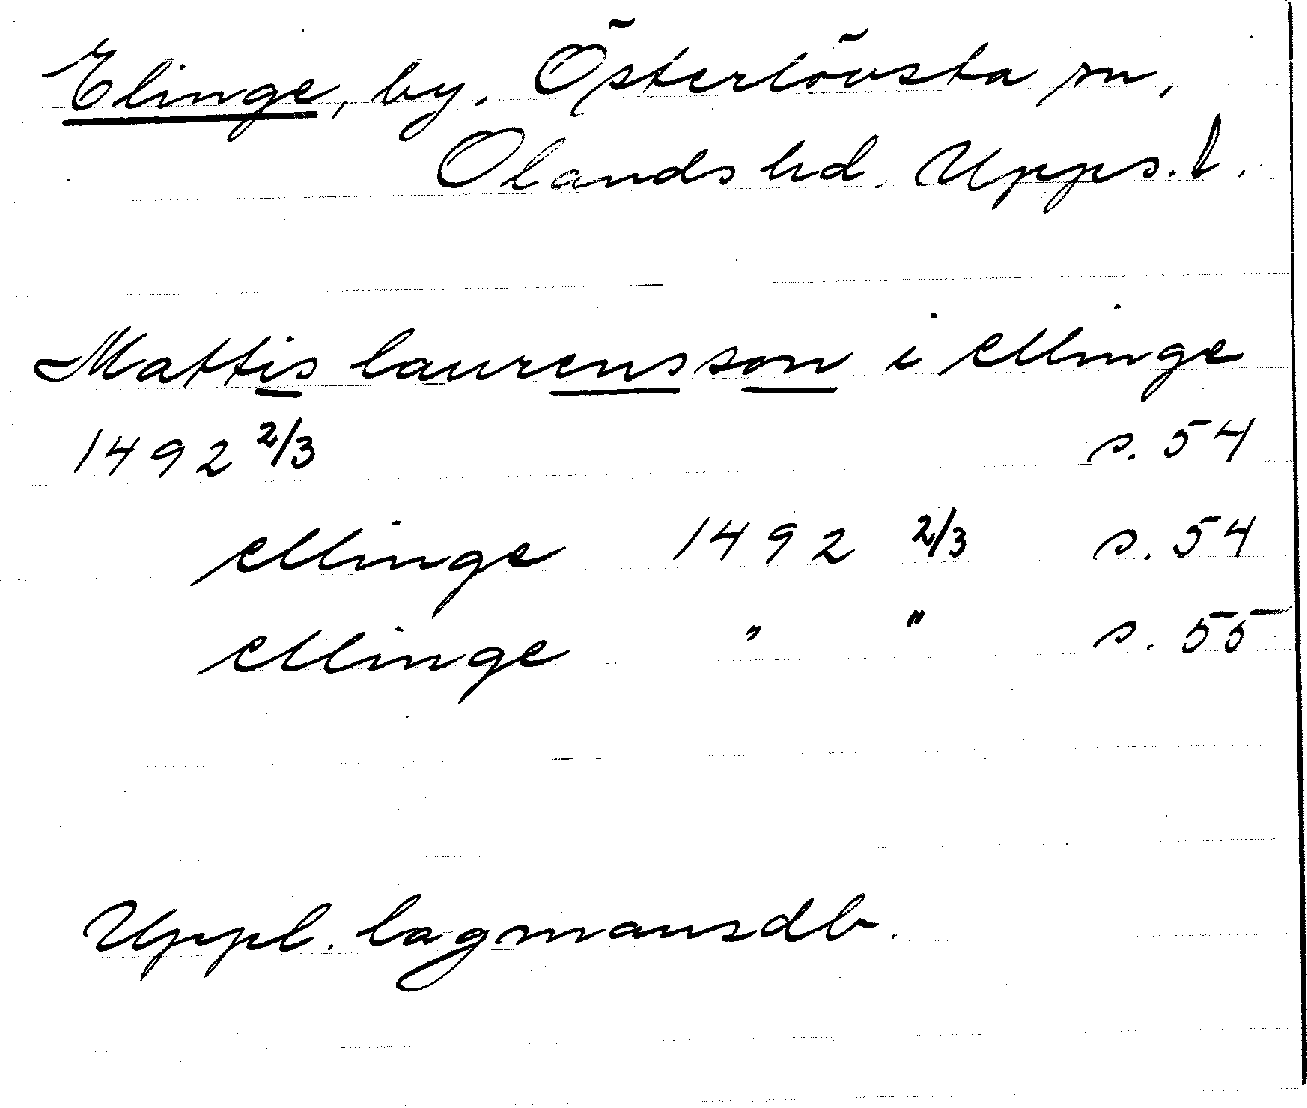 Elinge, by. Österlövsta sn,
Olands hd. Upps. l.
Mattis laurensson i ellinge
1492 2/3 s. 54
ellinge 1492 2/3 s. 54
ellinge " " s. 55
Uppl. lagmansdb.